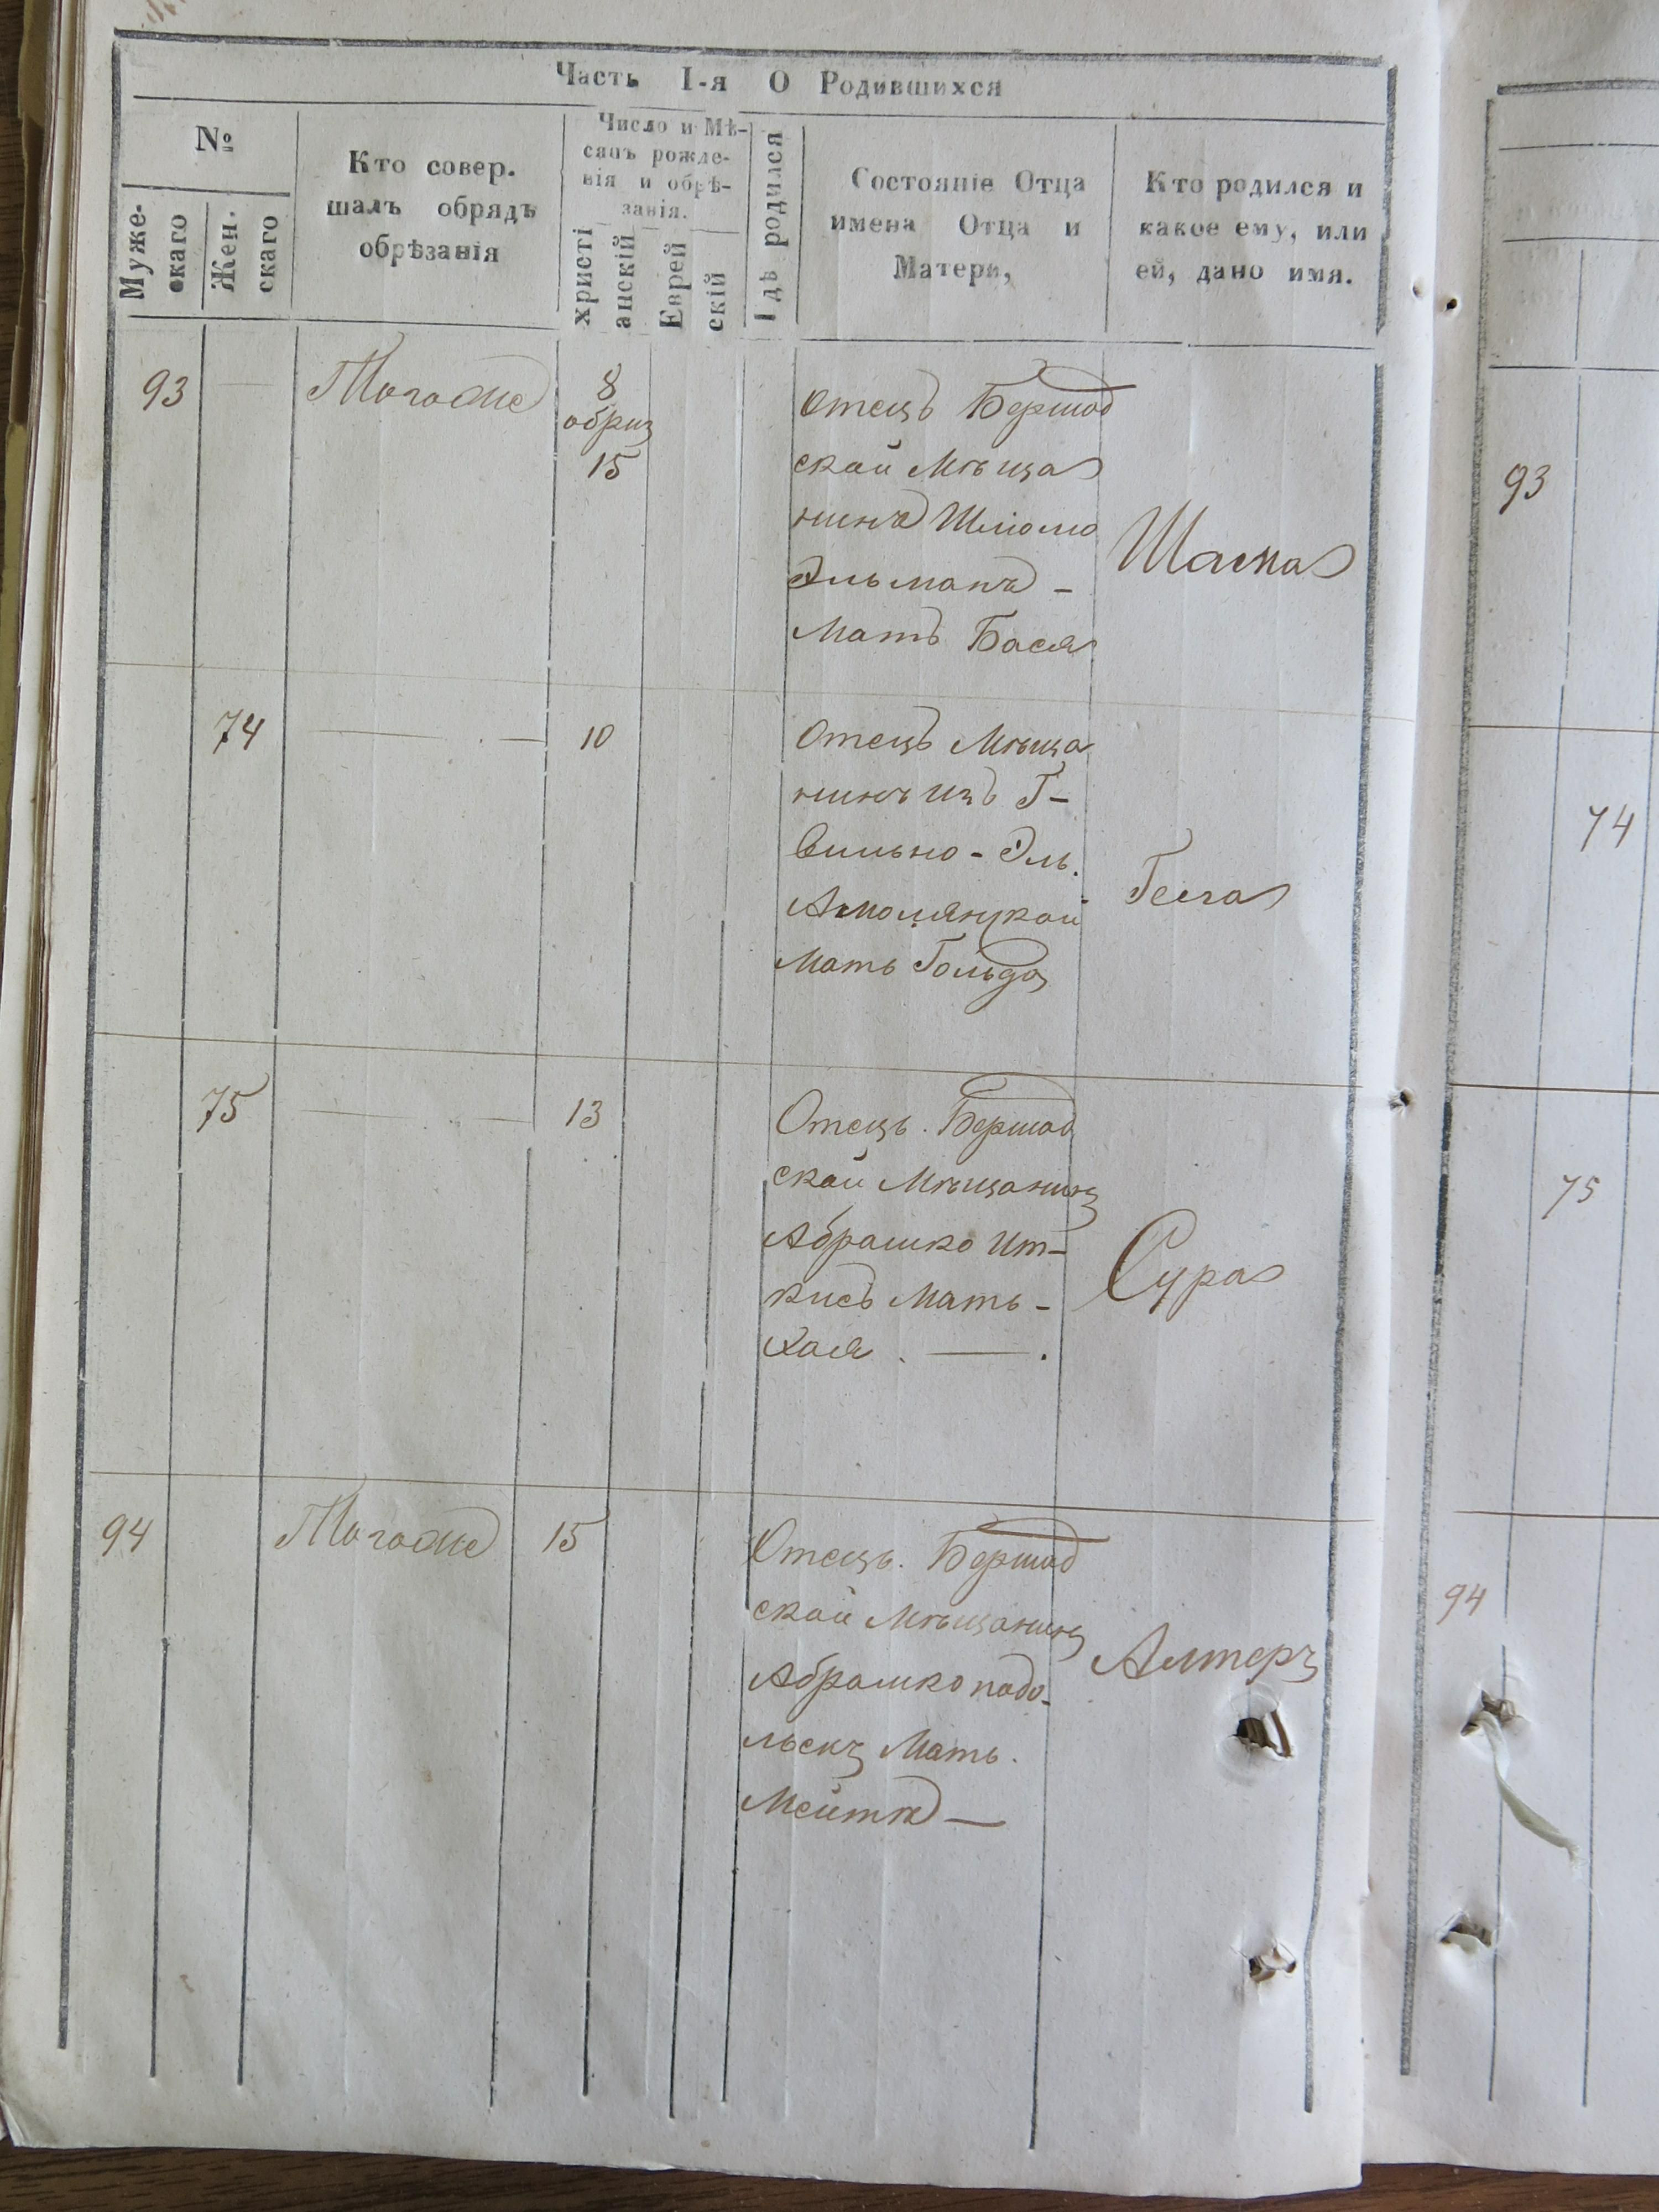 Часть I-я О Родившихся
№
Муже-
скаго
Жен.
скаго
Кто совер.
шалъ обрядъ
обрѣзанія
Число и Мѣ-
сяцъ рожде-
нія и обрѣ-
занія.
христі
анскій
Еврей
скій
Гдѣ родился
Состояніе Отца
имена Отца и
Матери,
Кто родился и
какое ему, или
ей, дано имя.
93
Тогоже
8
обриз
15
Отецъ Бершад
ской Мѣща
нинъ Шліомо
Эльманъ -
Матъ Бася
Шама
93
74
10
Отецъ Мѣща
нинъ изъ Г-
Вильно - Эль.
Мать Гольда
74
75
13
Отець. Бершад
ской Мѣщанинъ
Абрашко Ит-
кисъ Мать -
Хая . — .
Сура
75
94
Тогоже
15
Отець. Бершад
ской Мѣщанинъ
Абрашко подо-
льскъ Мать.
Мейтя —
Алтеръ
94